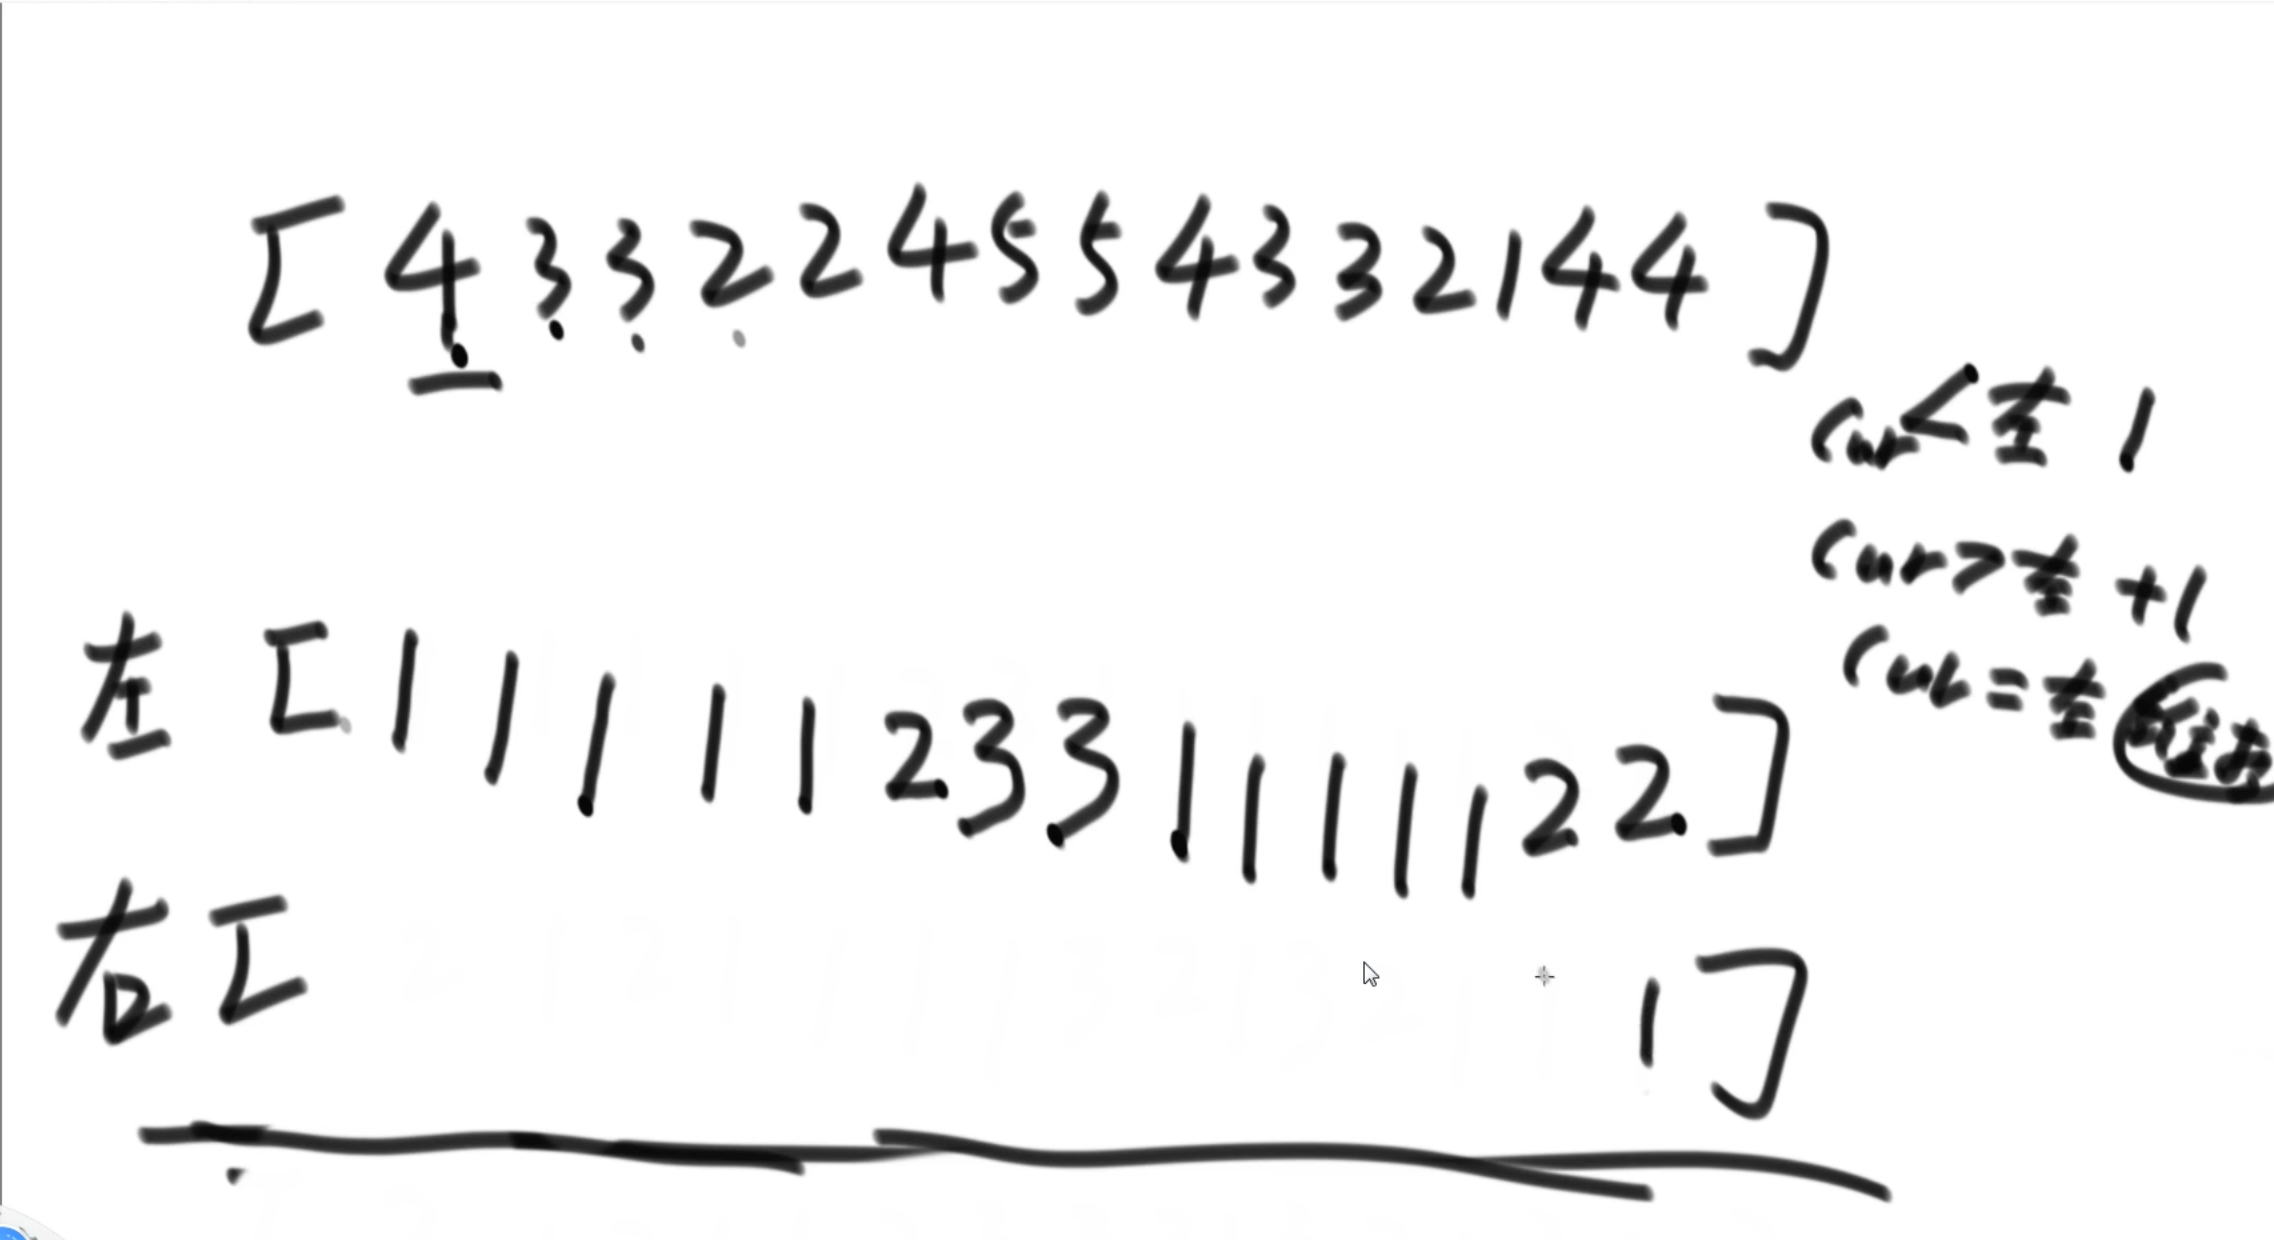 [ 4 3 3 2 2 4 5 5 4 3 3 2 1 4 4 ]
cur < 左 1
cur > 左 +1
cur = 左
左 [ 1 1 1 1 1 2 3 3 1 1 1 1 1 2 2 ]
右 [ 1 ]